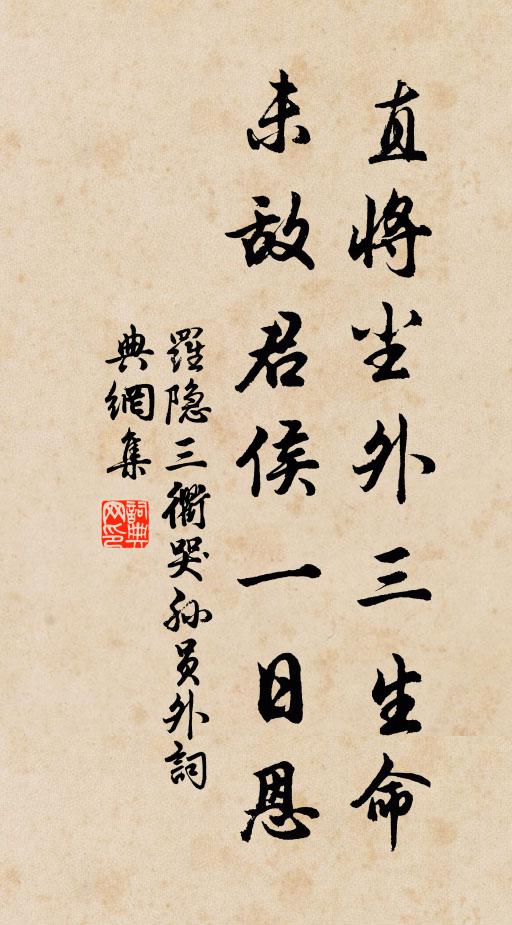 直將尘外三生命
未敌君侯一日恩
羅隐三衢哭孙员外詞
典網集
詞典
网印